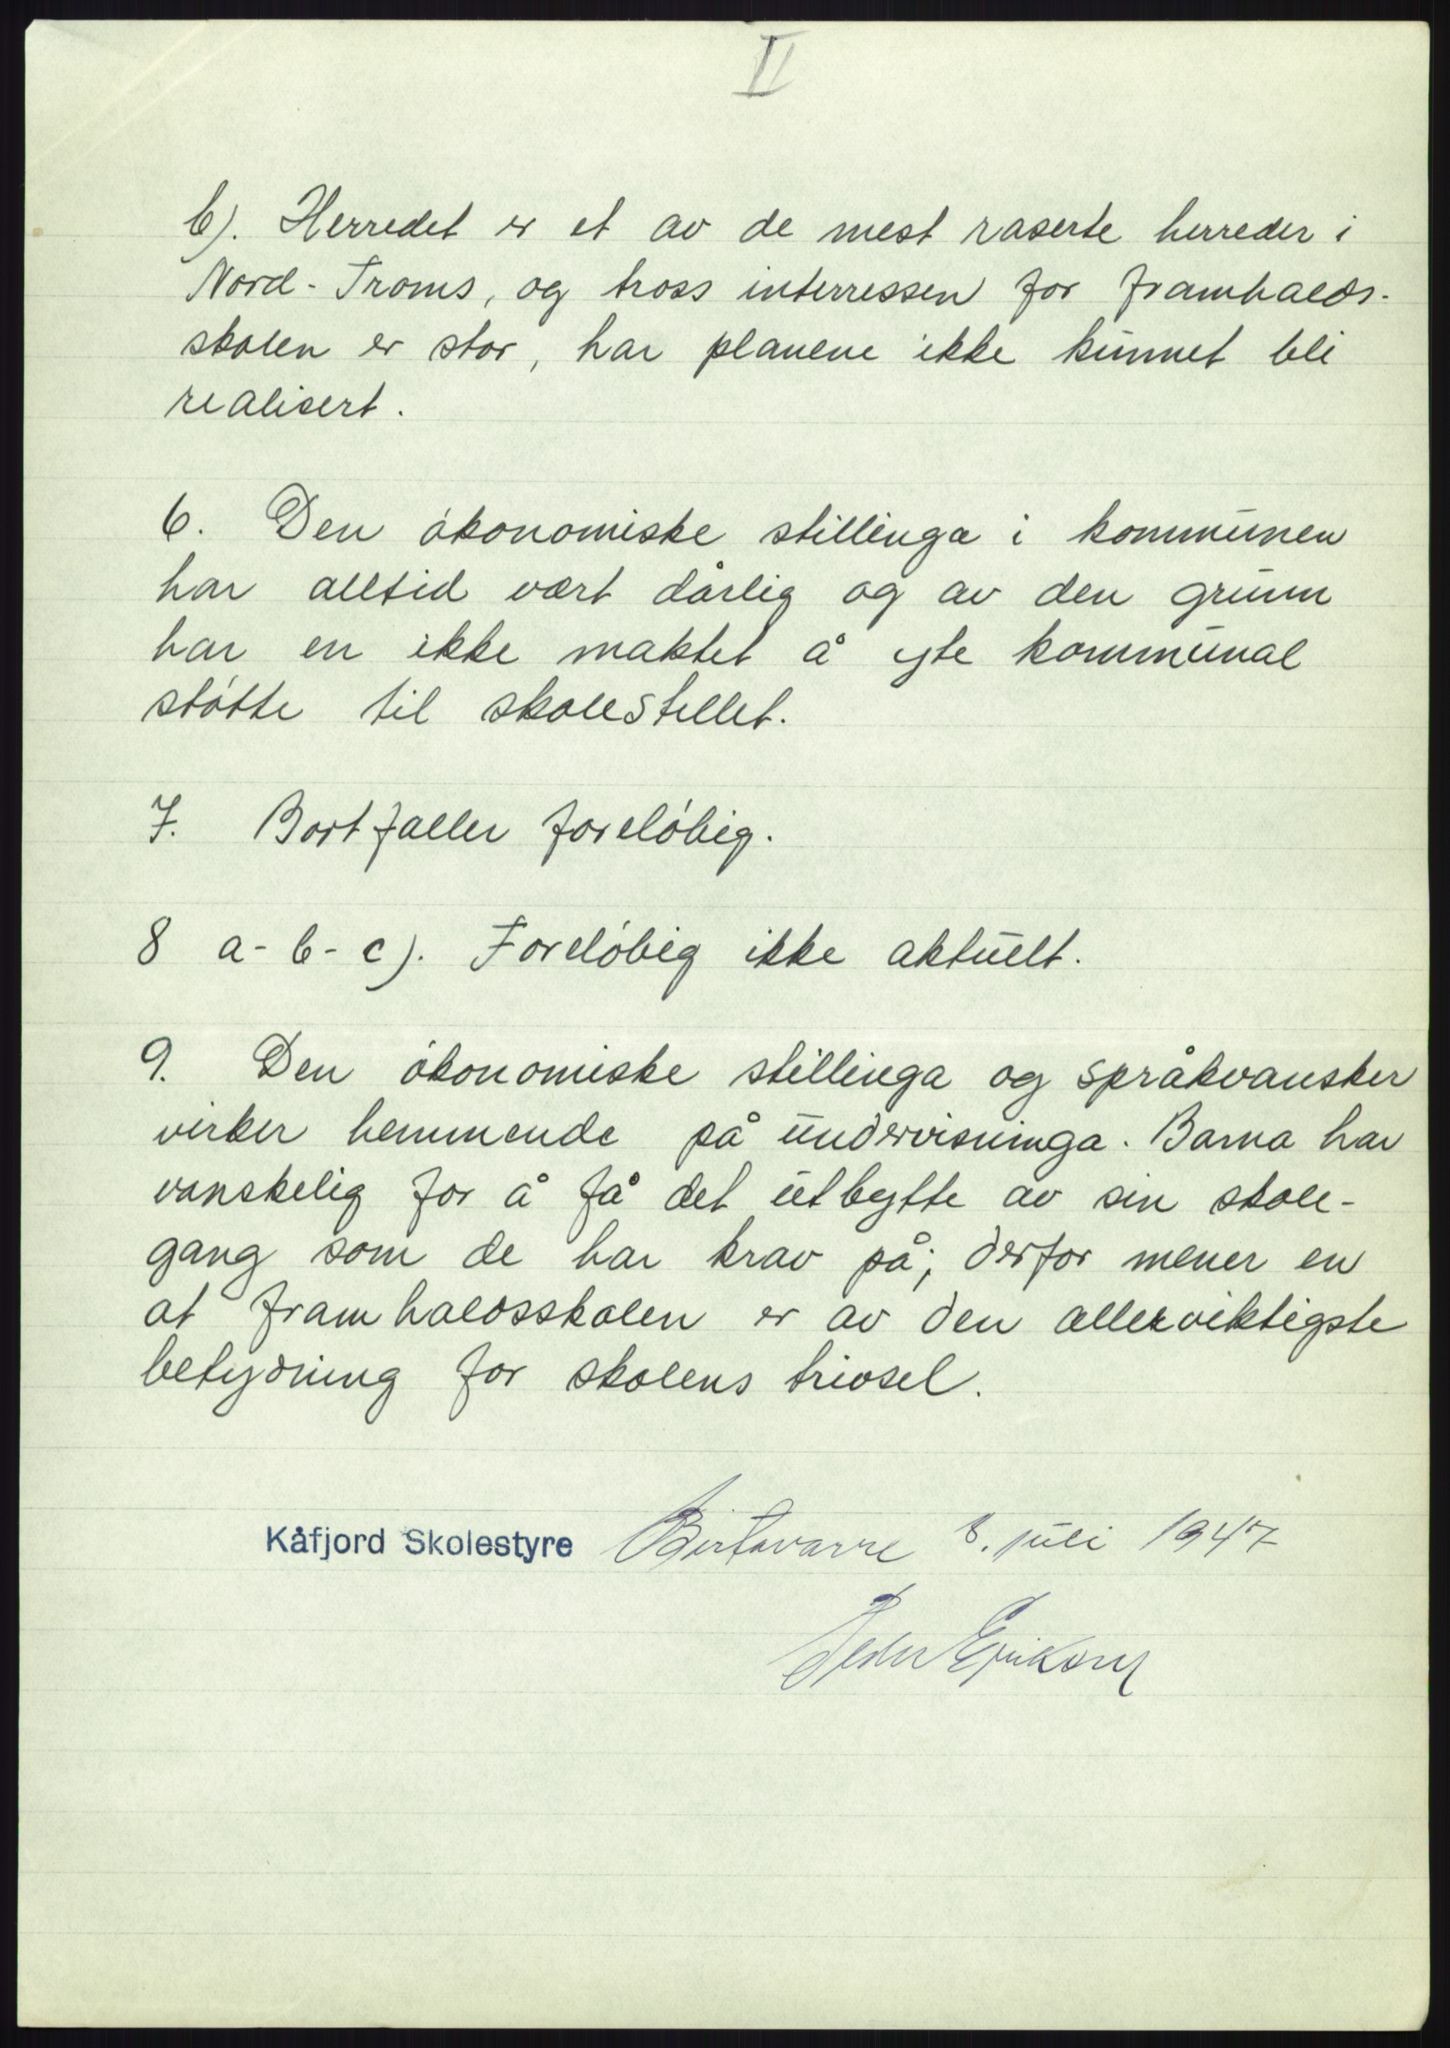 II
b). Herredet er et av de mest raserte herreder i
Nord-Troms, og tross interressen for framhalds-
skolen er stor, har planene ikke kunnet bli
realisert.
6. Den ökonomiske stillinga i kommunen
har alltid vært dårlig og av den grunn
har en ikke maktet å yte kommunal
støtte til skolestellet.
7. Bortfaller foreløbig.
8 a-b-c). Foreløbig ikke aktuelt.
9. Den økonomiske stillinga og språkvansker
virker hemmende på undervisninga. Barna har
vanskelig for å få det utbytte av sin skole-
gang som de har krav på; derfor mener en
at framhaldsskolen er av den allerviktigste
betydning for skolens trivsel.
Kåfjord Skolestyre Birtavarre 8. juli 1947
Peder Eriksen